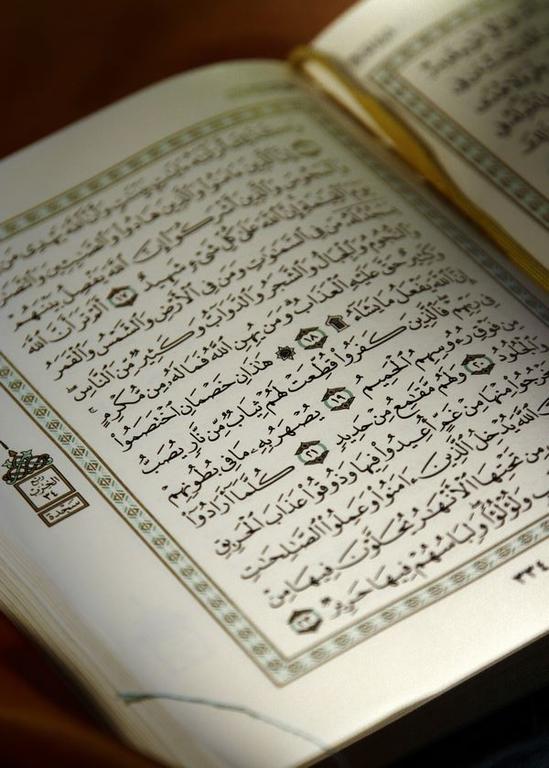 يَهْدِى مَن
ءَامَنُوا۟ وَٱلَّذِينَ هَادُوا۟ وَٱلصَّـٰبِـِٔينَ وَٱلنَّصَـٰرَىٰ
وَٱلْمَجُوسَ وَٱلَّذِينَ أَشْرَكُوٓا۟ إِنَّ ٱللَّهَ يَفْصِلُ بَيْنَهُمْ
يَوْمَ ٱلْقِيَـٰمَةِ إِنَّ ٱللَّهَ عَلَىٰ كُلِّ شَىْءٍ شَهِيدٌ ١٧ أَلَمْ تَرَ أَنَّ ٱللَّهَ
يَسْجُدُ لَهُۥ مَن فِى ٱلسَّمَـٰوَٰتِ وَمَن فِى ٱلْأَرْضِ وَٱلشَّمْسُ وَٱلْقَمَرُ
وَٱلنُّجُومُ وَٱلْجِبَالُ وَٱلشَّجَرُ وَٱلدَّوَآبُّ وَكَثِيرٌ مِّنَ ٱلنَّاسِ
وَكَثِيرٌ حَقَّ عَلَيْهِ ٱلْعَذَابُ وَمَن يُهِنِ ٱللَّهُ فَمَا لَهُۥ مِن مُّكْرِمٍ
إِنَّ ٱللَّهَ يَفْعَلُ مَا يَشَآءُ ۩ ١٨ ۞ هَـٰذَانِ خَصْمَانِ ٱخْتَصَمُوا۟
فِى رَبِّهِمْ فَٱلَّذِينَ كَفَرُوا۟ قُطِّعَتْ لَهُمْ ثِيَابٌ مِّن نَّارٍ يُصَبُّ
مِن فَوْقِ رُءُوسِهِمُ ٱلْحَمِيمُ ١٩ يُصْهَرُ بِهِۦ مَا فِى بُطُونِهِمْ
وَٱلْجُلُودُ ٢٠ وَلَهُم مَّقَـٰمِعُ مِنْ حَدِيدٍ ٢١ كُلَّمَآ أَرَادُوٓا۟
يَخْرُجُوا۟ مِنْهَا مِنْ غَمٍّ أُعِيدُوا۟ فِيهَا وَذُوقُوا۟ عَذَابَ ٱلْحَرِيقِ
ٱللَّهَ يُدْخِلُ ٱلَّذِينَ ءَامَنُوا۟ وَعَمِلُوا۟ ٱلصَّـٰلِحَـٰتِ
مِن تَحْتِهَا ٱلْأَنْهَـٰرُ يُحَلَّوْنَ فِيهَا مِنْ
وَلُؤْلُؤًا وَلِبَاسُهُمْ فِيهَا حَرِيرٌ ٢٣
٣٣٤
ربع
الحزب
٣٤
سجدة